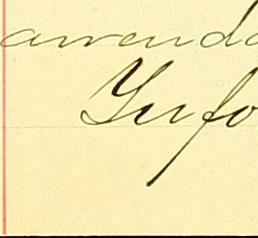 arrenda
Yufo